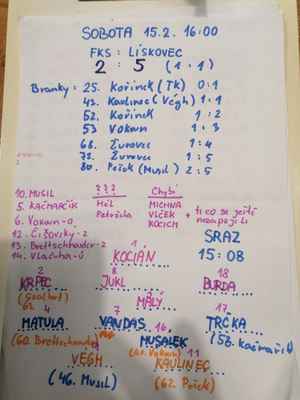 SOBOTA 15.2. 16:00
FKS : LÍSKOVEC
2 : 5 (1:1)
Branky: 25. Kořínek (TK) 0:1
43. Kaulinec (Végh) 1:1
52. Kořínek 1:2
53 Vokoun 1:3
66. Žurovec 1:4
72. Žurovec 1:5
80. Peček (Musil) 2:5
10. MUSIL
5. KAČMARČÍK
6. Vokoun-0
12. Čišovský-2
13. Brettschneider-2
14. Vlačuha-0
???
Hél
Petružela
Chybí
MICHNA
VLČEK
KOCICH
+ ti co se ještě
neozvali
SRAZ
15:08
1
KOCIÁN
2 8 18
KRPEC JUKL BURDA
MÁLÝ
62.
4 7 17
MATULA VANDAS TRČKA
(60. Brettschneider)
16
MUSÁLEK
(58. Kačmařík)
(61. Vokoun)
VÉGH
11
KAULINEC
(46. Musil)
(62. Peček)